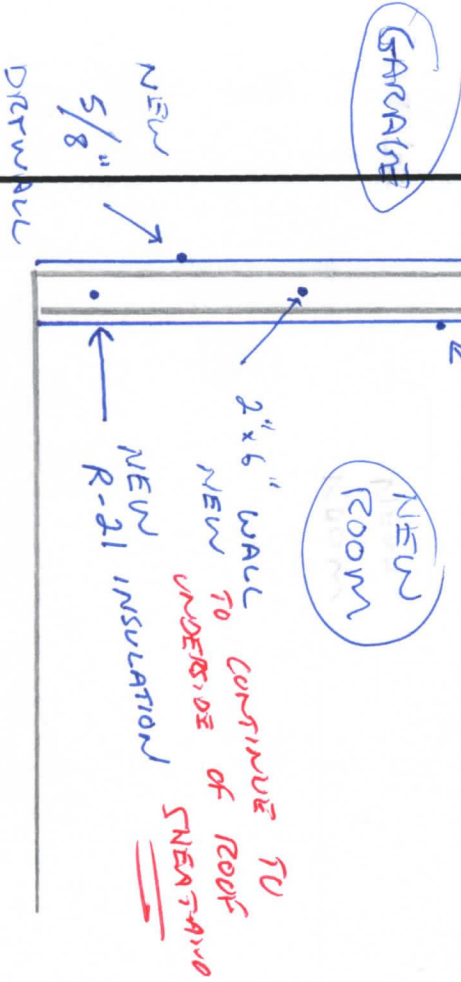 GARAGE
NEW
5/8"
DRYWALL
NEW
ROOM
2"x6" WALL
NEW
TO CONTINUE TO
UNDERSIDE OF ROOF
SHEATHING
NEW
R-21 INSULATION